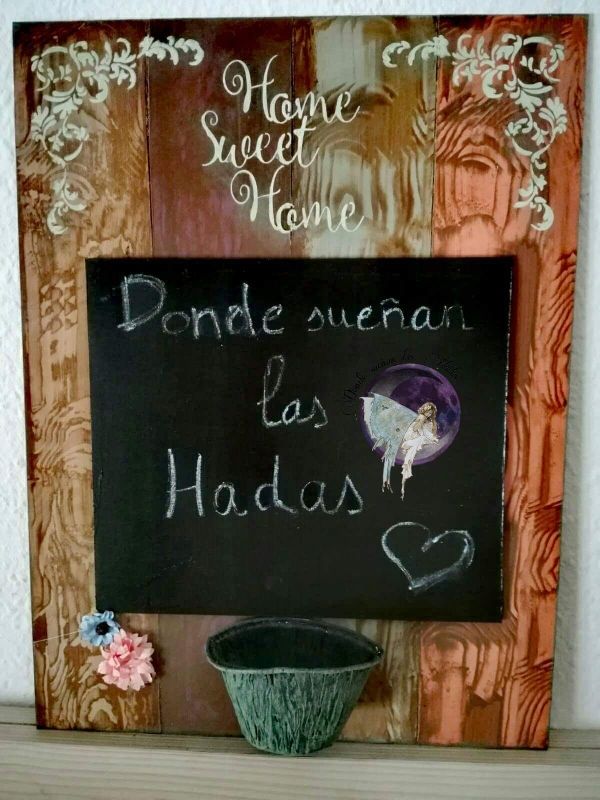 Home
Sweet
Home
Donde sueñan
las
Hadas
Donde sueñan las Hadas